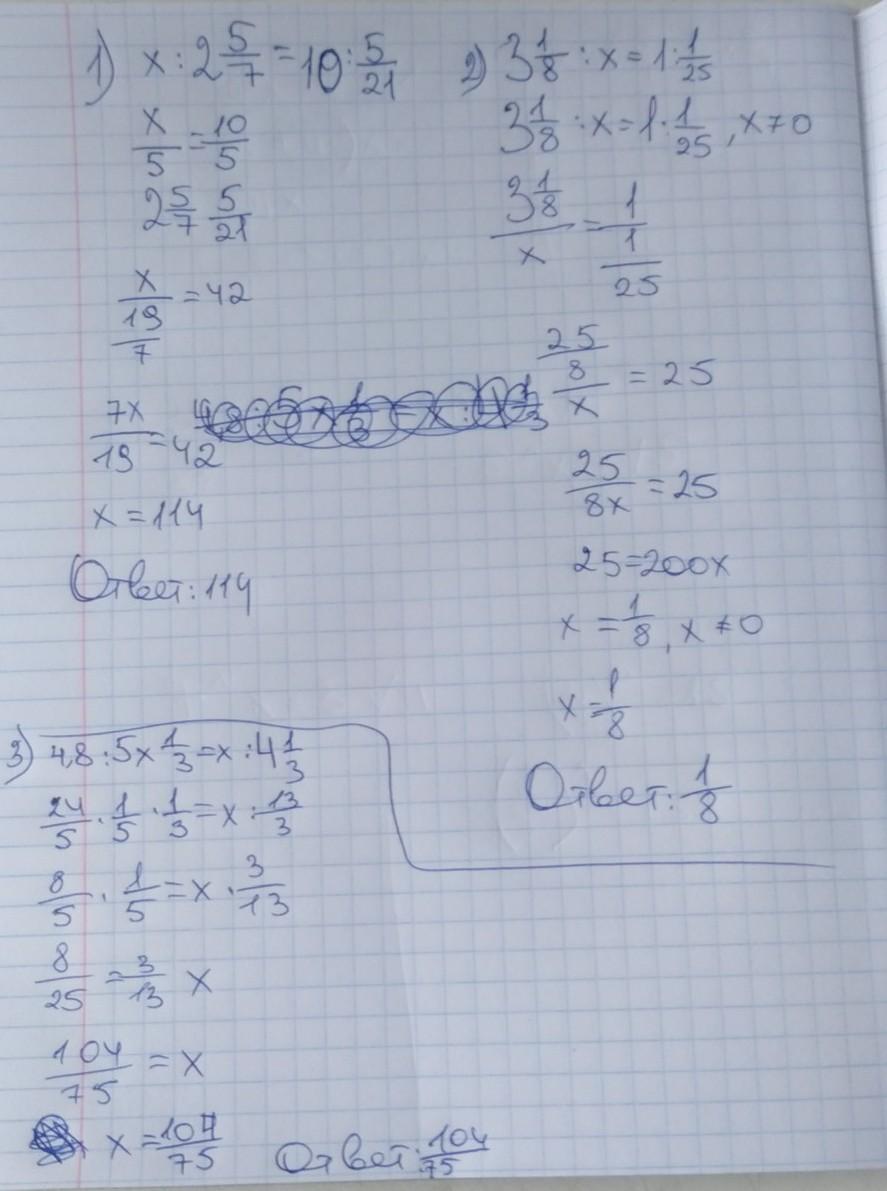 1) x : 2 5/7 = 10 : 5/21
x/5 = 10/5
2 5/7 5/21
x/(19/7) = 42
7x/19 = 42
x = 114
Ответ: 114
2) 3 1/8 : x = 1 : 1/25
3 1/8 : x = 1 : 1/25, x ≠ 0
(3 1/8)/x = 1/(1/25)
(25/8)/x = 25
25/8x = 25
25 = 200x
x = 1/8, x ≠ 0
x = 1/8
Ответ: 1/8
3) 4,8 : 5 x 1/3 = x : 4 1/3
24/5 · 1/5 · 1/3 = x : 13/3
8/5 · 1/5 = x · 3/13
8/25 = 3/13 x
104/75 = x
x = 104/75 Ответ: 104/75